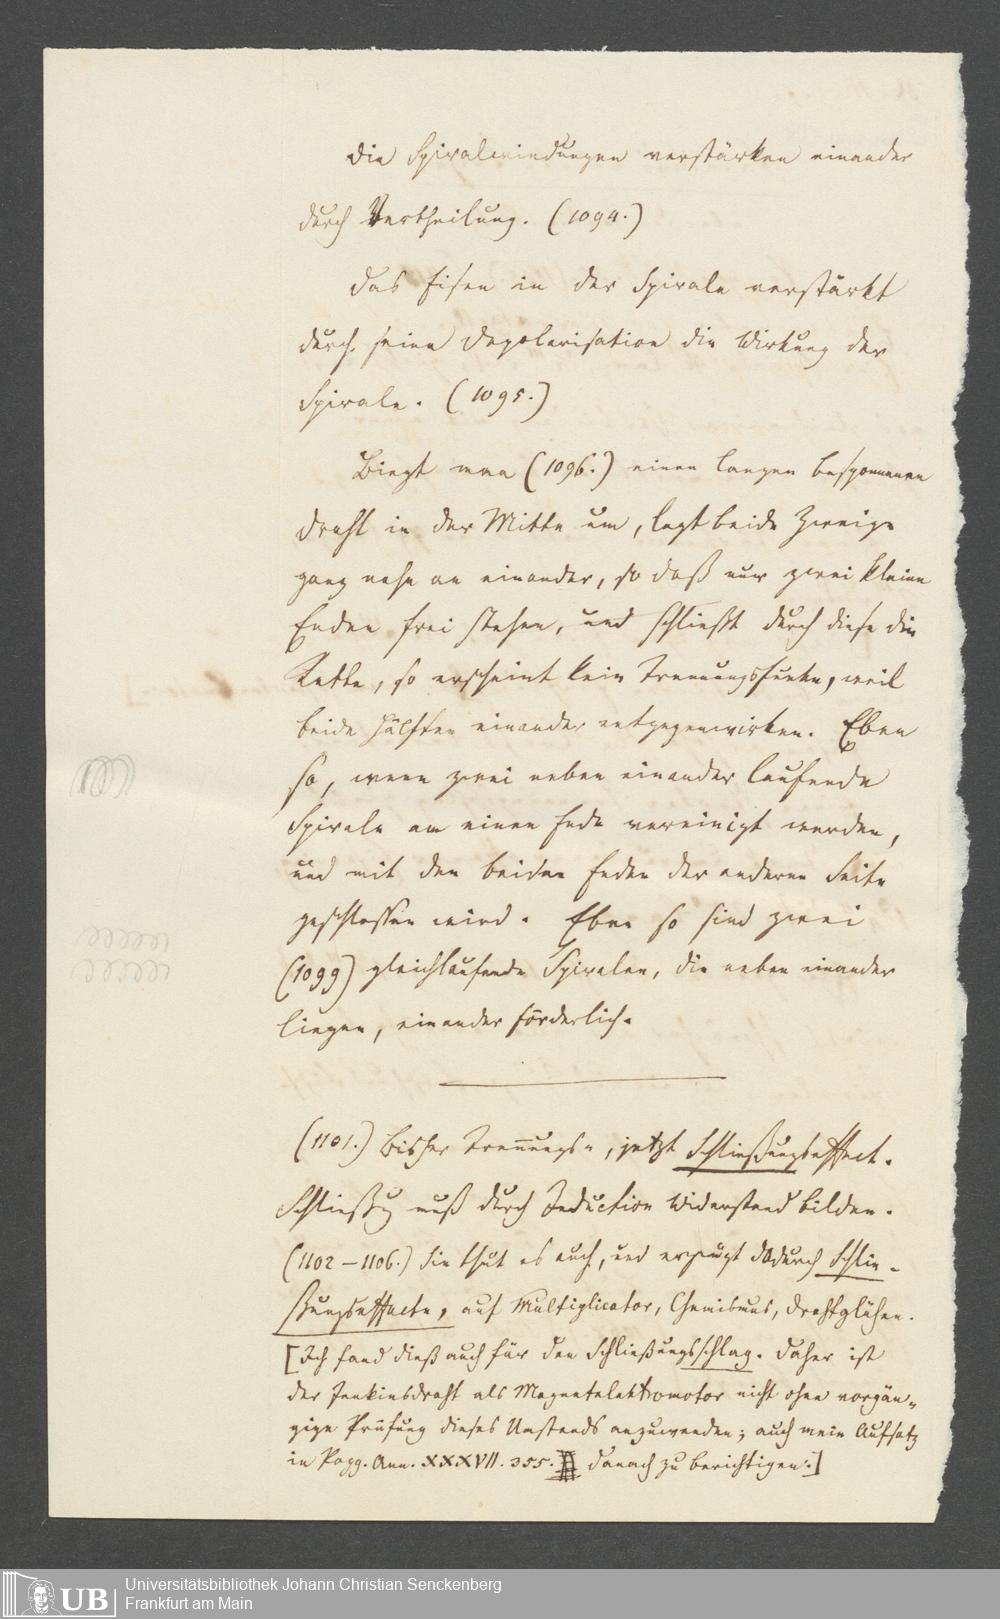 Die Spiralwindungen verstärken einander
durch Vertheilung. (1094.)
Das Eisen in der Spirale verstärkt
durch seine Depolarisation die Wirkung der
Spirale. (1095.)
Biegt man (1096.) einen langen besponnenen
Draht in der Mitte um, legt beide Zweige
ganz nahe an einander, so daß nur zwei kleine
Enden frei stehen, und schließt durch diese die
Kette, so erscheint kein Trennungsfunke, weil
beide Hälften einander entgegenwirken. Eben
so, wenn zwei neben einander laufende
Spirale am einen Ende vereinigt werden,
und mit den beiden Enden der anderen Seite
geschlossen wird. Eben so sind zwei
(1099) gleichlaufende Spiralen, die neben einander
liegen, einander förderlich.
(1101.) Bisher Trennungs-, jetzt Schließungseffect.
Schließg muß durch Induction Widerstand bilden.
(1102–1106.) Sie thut es auch, und erzeugt dadurch Schlie-
ßungseffecte, auf Multiplicator, Chemismus, Drahtglühen.
[Ich fand dieß auch für den Schließungsschlag. Daher ist
der Jenkinsdraht als Magnetelektromotor nicht ohne vorgän-
gige Prüfung dieses Umstands anzuwenden; auch mein Aufsatz
in Pogg. Ann. XXXVII. 355. danach zu berichtigen.]
UB
Universitätsbibliothek Johann Christian Senckenberg
Frankfurt am Main